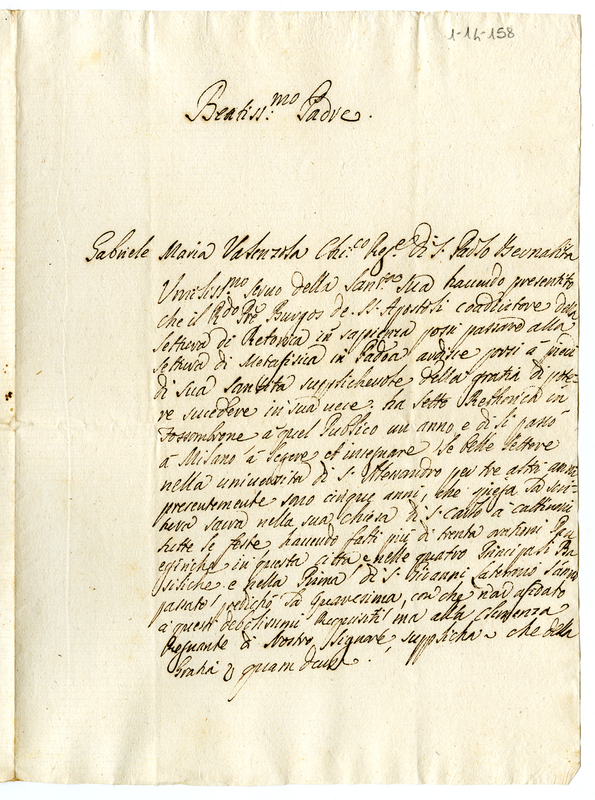 1-14-158
Beatiss:mo Padre.
Gabriele Maria Valenzola Chi:co Reg:e di S. Paolo
Umiliss:mo Servo della Sant:tà Sua havendo presentito
che il R:do P:re Burgos de SS. Apostoli coadiutore della
lettura di Retorica in sapienza possi passare alla
lettura di Metafisica in Padoa ardisce porsi a piedi
di sua santità supplichevole della gratia di pote=
re succedere in sua vece; ha letto Rethorica in
Fosombrone a quel Publico un anno e di li passò
a Milano a legere et insegnare le belle lettere
nella università di S. Alessandro per tre altri anni
presentemente sono cinque anni, che spiega la scrit=
tura sacra nella sua chiesa di S. Carlo a catinari
tutte le feste havendo fatti più di trenta
in questa città e nelle quatro Principali Ba
siliche e nella Prima di S. Giovanni Laterano l'anno
passato predichò la Quaresima, con che
a questi debolissimi Requisiti ma alla Clemenza
Regnante di Nostro Signore, supplicha che della
Gratia quam Deus.